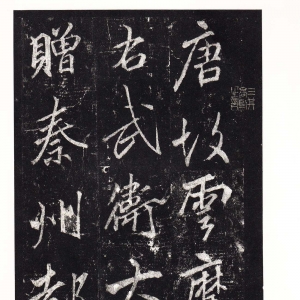 唐故雲麾
右武衛大
贈秦州都